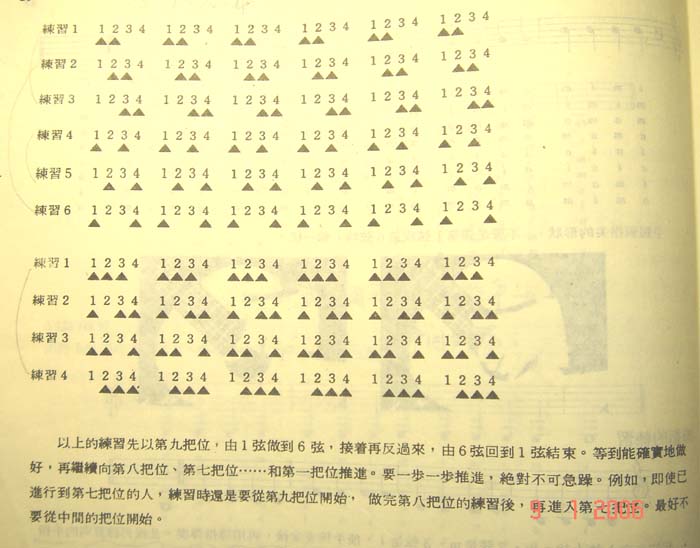 練習1 1 2 3 4 1 2 3 4 1 2 3 4 1 2 3 4 1 2 3 4 1 2 3 4
練習2 1 2 3 4 1 2 3 4 1 2 3 4 1 2 3 4 1 2 3 4 1 2 3 4
練習3 1 2 3 4 1 2 3 4 1 2 3 4 1 2 3 4 1 2 3 4 1 2 3 4
練習4 1 2 3 4 1 2 3 4 1 2 3 4 1 2 3 4 1 2 3 4 1 2 3 4
練習5 1 2 3 4 1 2 3 4 1 2 3 4 1 2 3 4 1 2 3 4 1 2 3 4
練習6 1 2 3 4 1 2 3 4 1 2 3 4 1 2 3 4 1 2 3 4 1 2 3 4
練習1 1 2 3 4 1 2 3 4 1 2 3 4 1 2 3 4 1 2 3 4 1 2 3 4
練習2 1 2 3 4 1 2 3 4 1 2 3 4 1 2 3 4 1 2 3 4 1 2 3 4
練習3 1 2 3 4 1 2 3 4 1 2 3 4 1 2 3 4 1 2 3 4 1 2 3 4
練習4 1 2 3 4 1 2 3 4 1 2 3 4 1 2 3 4 1 2 3 4 1 2 3 4
以上的練習先以第九把位，由1弦做到6弦，接着再反過來，由6弦回到1弦結束。等到能確實地做
好，再繼續向第八把位、第七把位……和第一把位推進。要一步一步推進，絕對不可急躁。例如，即使已
進行到第七把位的人，練習時還是要從第九把位開始，做完第八把位的練習後，再進入第七把位。最好不
要從中間的把位開始。
9 1 2006